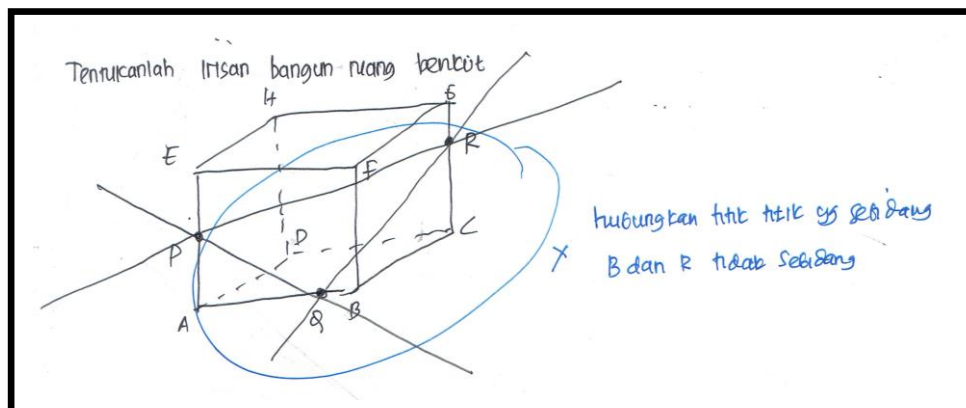 Tentukanlah irisan bangun ruang berikut
H
G
E
F
R
P
D
C
A
Q
B
hubungkan titik titik yg sebidang
X
B dan R tidak sebidang